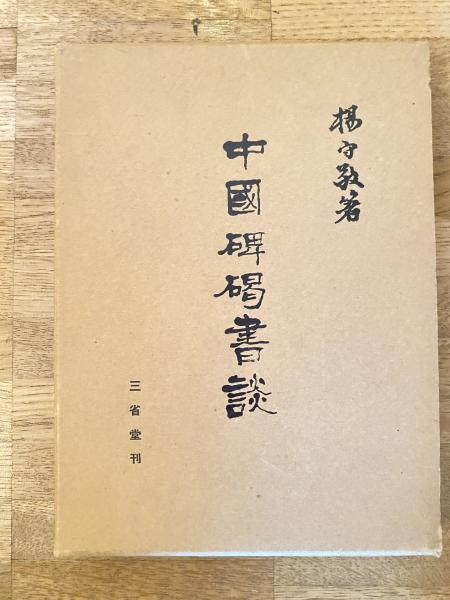 楊守敬著
中國碑碣書談
三省堂刊